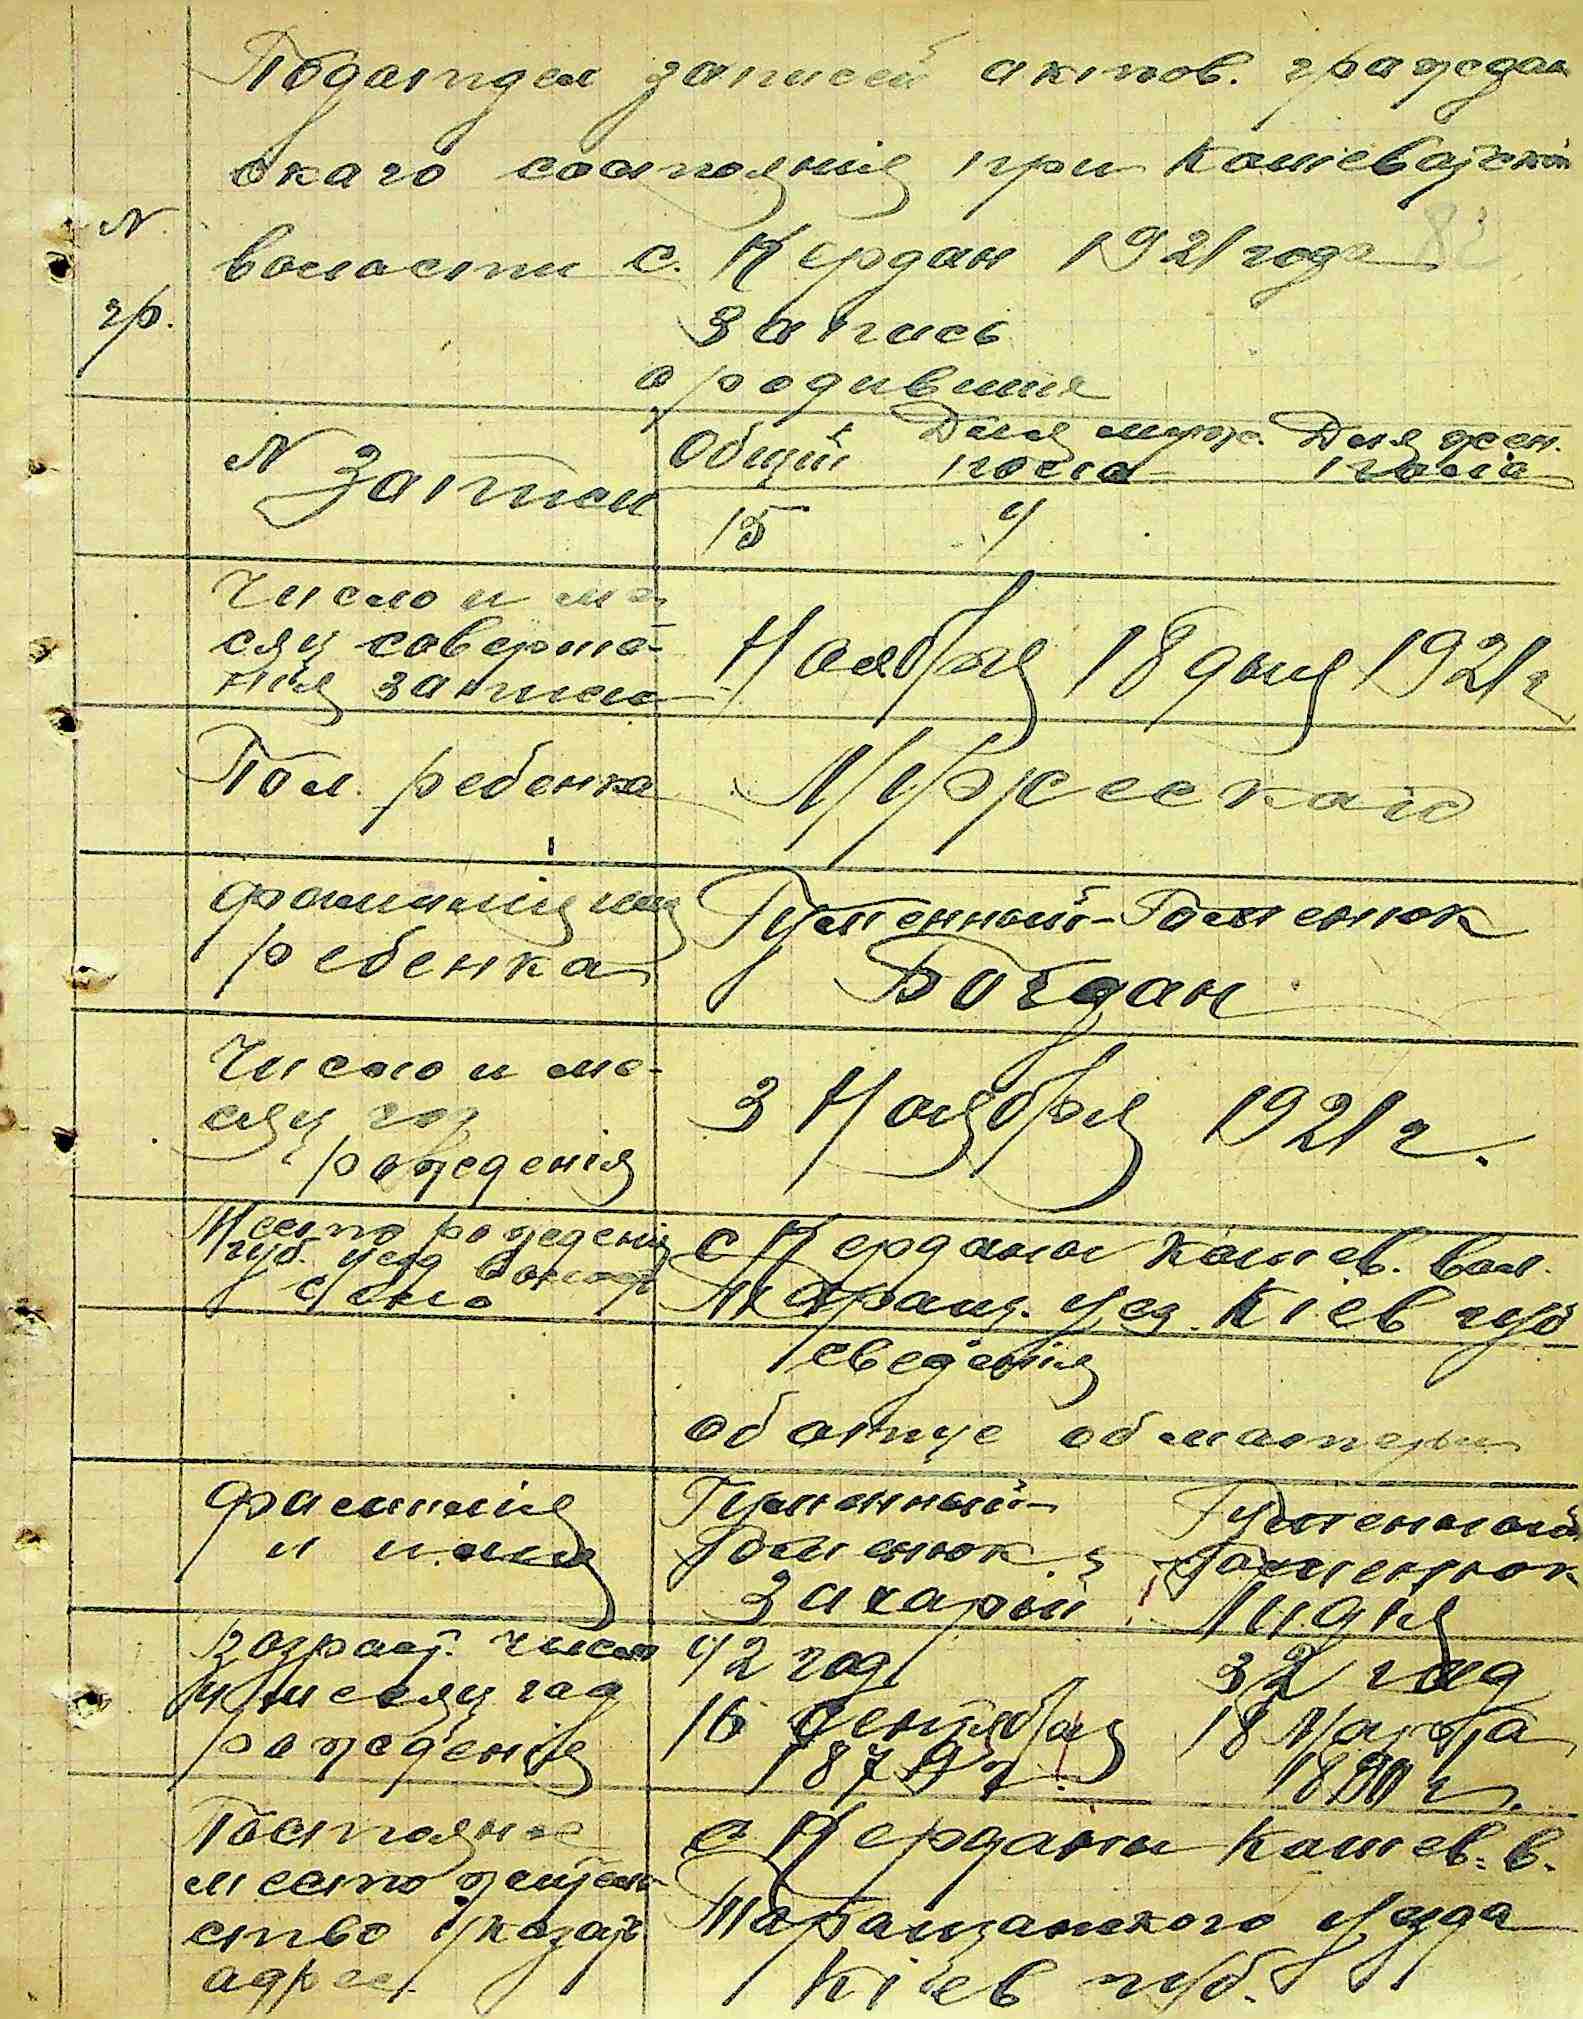 Подотдел записей актов. граждан
скаго состояния при Кошеватской
N.
волости с. Кердан 1921 года
гр.
Запись
о родивших
N Записи
Общий Для муж. пола Для жен. пола
15 4
Число и ме
сяц соверше-
ния записи
Ноября 18 дня 1921 г
Пол. ребенка
Мужескаго
Фамилия имя
ребенка
Гуменный-Гоменюк
Богдан
Число и ме-
сяц год
рождения
3 Ноября 1921 г.
Место рождения
губ. уезд волость
село
с Керданы Кошев. вол.
Таращ. уез. Кіев губ
сведения
об отце об матери
Фамилия
и имя
Гуменный-
Гоменюк
Захарий
Гуменный
Гоменюк
Лидия
Возраст. число
и месяц год
рождения
42 год
16 Сентября
1879 г
32 год
18 Марта
1890 г.
Постоянное
место жительство
ство указать
адрес.
с Керданы Кошев. в.
Таращанского уезда
Кіев губ.